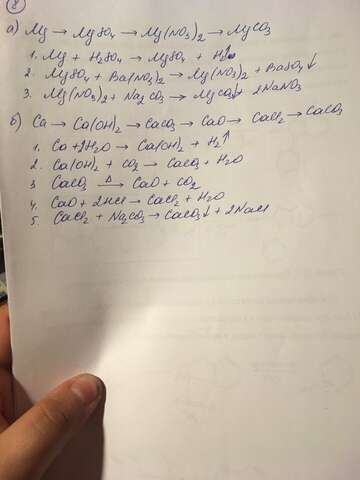 8
а) Mg → MgSO4 → Mg(NO3)2 → MgCO3
1. Mg + H2SO4 → MgSO4 + H2↑
2. MgSO4 + Ba(NO3)2 → Mg(NO3)2 + BaSO4↓
3. Mg(NO3)2 + Na2CO3 → MgCO3↓ + 2NaNO3
б) Ca → Ca(OH)2 → CaCO3 → CaO → CaCl2 → CaCO3
1. Ca + 2H2O → Ca(OH)2 + H2↑
2. Ca(OH)2 + CO2 → CaCO3 + H2O
3 CaCO3 →Δ CaO + CO2
4. CaO + 2HCl → CaCl2 + H2O
5. CaCl2 + Na2CO3 → CaCO3↓ + 2NaCl